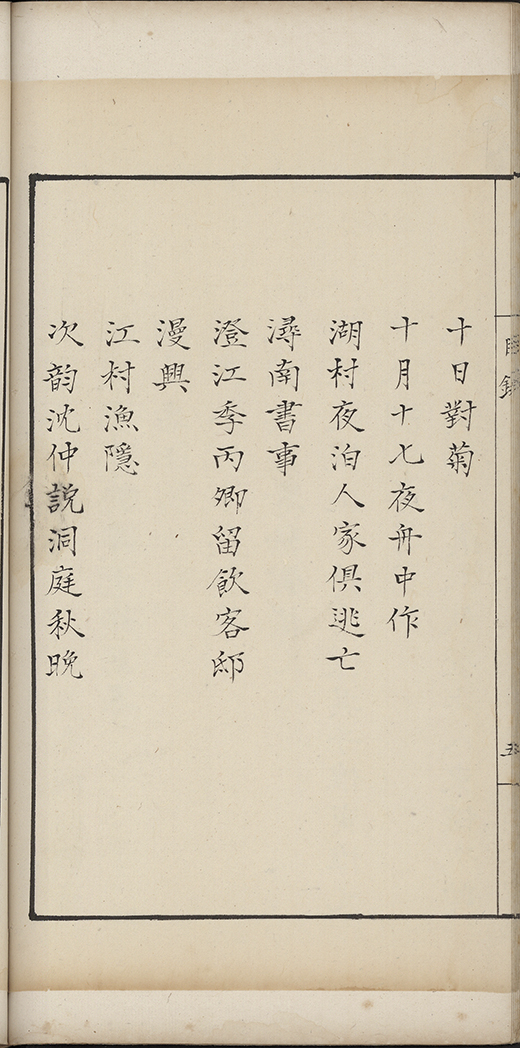 目錄
五
十日對菊
十月十七夜舟中作
湖村夜泊人家俱逃亡
潯南書事
澄江季丙卿留飲客邸
漫興
江村漁隱
次韵沈仲說洞庭秋晚